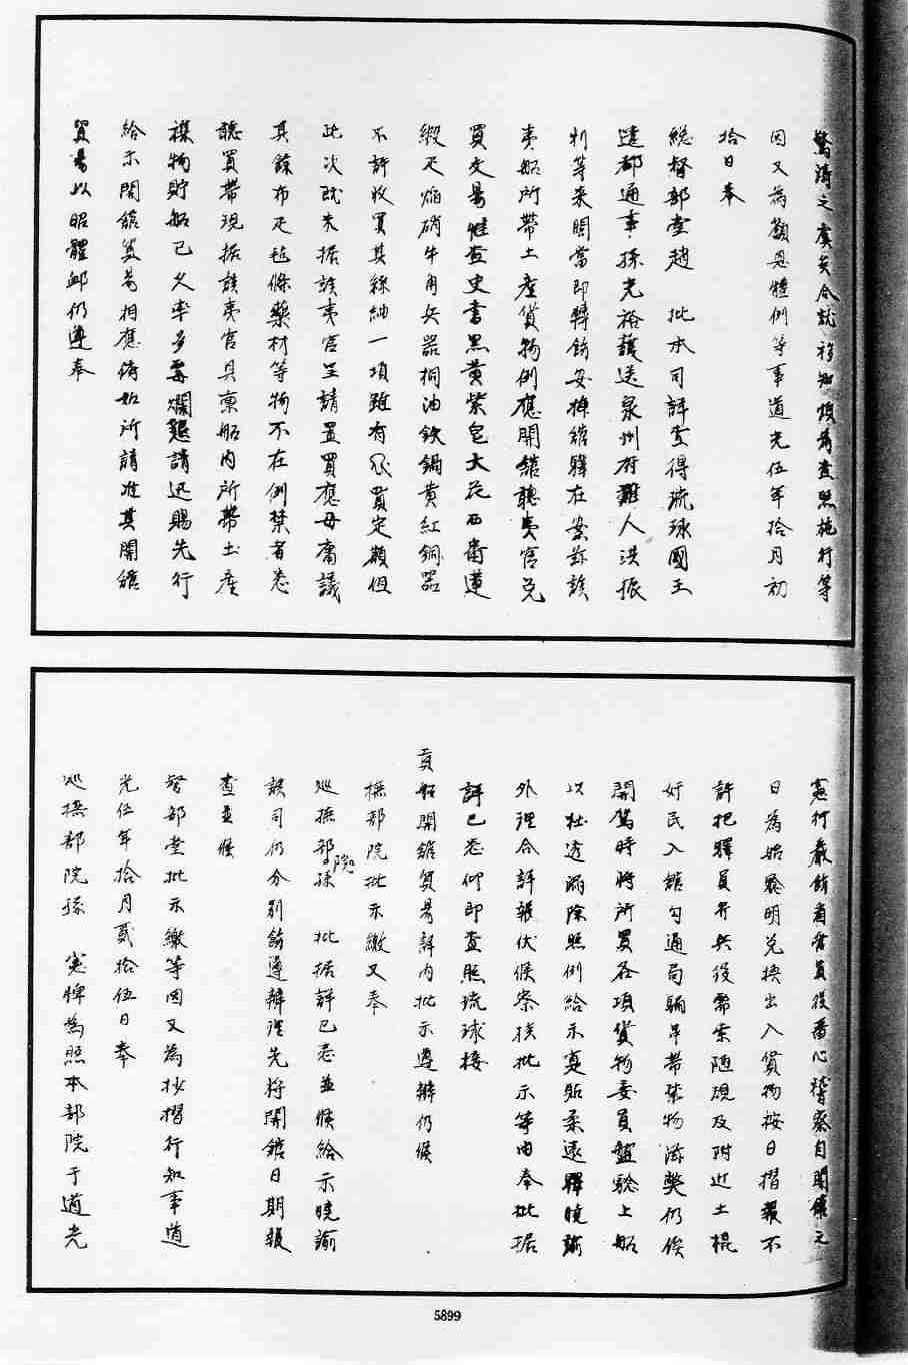 驚濤之虞矣合就移知煩為查照施行等
因又為籲恩體例等事道光伍年拾月初
拾日奉
總督部堂趙　批本司詳查得琉球國王
遣都通事孫光裕護送泉州府難人洪振
利等來閩當即轉飭安揷館驛在案茲該
夷船所帶土產貨物例應開館聽夷官兌
買交易惟查史書黑黃紫皂大花西番蓮
緞疋焰硝牛角兵器桐油鉄鍋黃紅銅器
不許收買其絲紬一項雖有收買定額但
此次既未據該夷官呈請置買應毋庸議
其餘布疋毡條藥材等物不在例禁者悉
聽買帶現据該夷官具禀船內所帶土產
襍物貯船已久率多霉爛懇請迅賜先行
給示開館貿易相應俯如所請准其開館
貿易以昭體卹仍遵奉
憲行嚴飭看守員役悉心稽察自開館之
日為始黎明兌換出入貨物按日摺報不
許把驛員弁兵役需索陋規及附近土棍
奸民入館勾通局騙串帶禁物滋獘仍俟
開駕時將所買各項貨物委員盤驗上船
以杜透漏除照例給示寔貼柔遠驛曉諭
外理合詳報伏候察核批示等由奉批据
詳已悉仰即查照琉球接
貢船開館貿易詳內批示遵辦仍候
撫部院批示繳又奉
巡撫部院孫　批據詳已悉並候給示曉諭
該司仍分別飭遵辦理先將開館日期報
查並候
督部堂批示繳等因又為抄摺行知事道
光伍年拾月貳拾伍日奉
巡撫部院孫　憲牌為照本部院于道光
5899